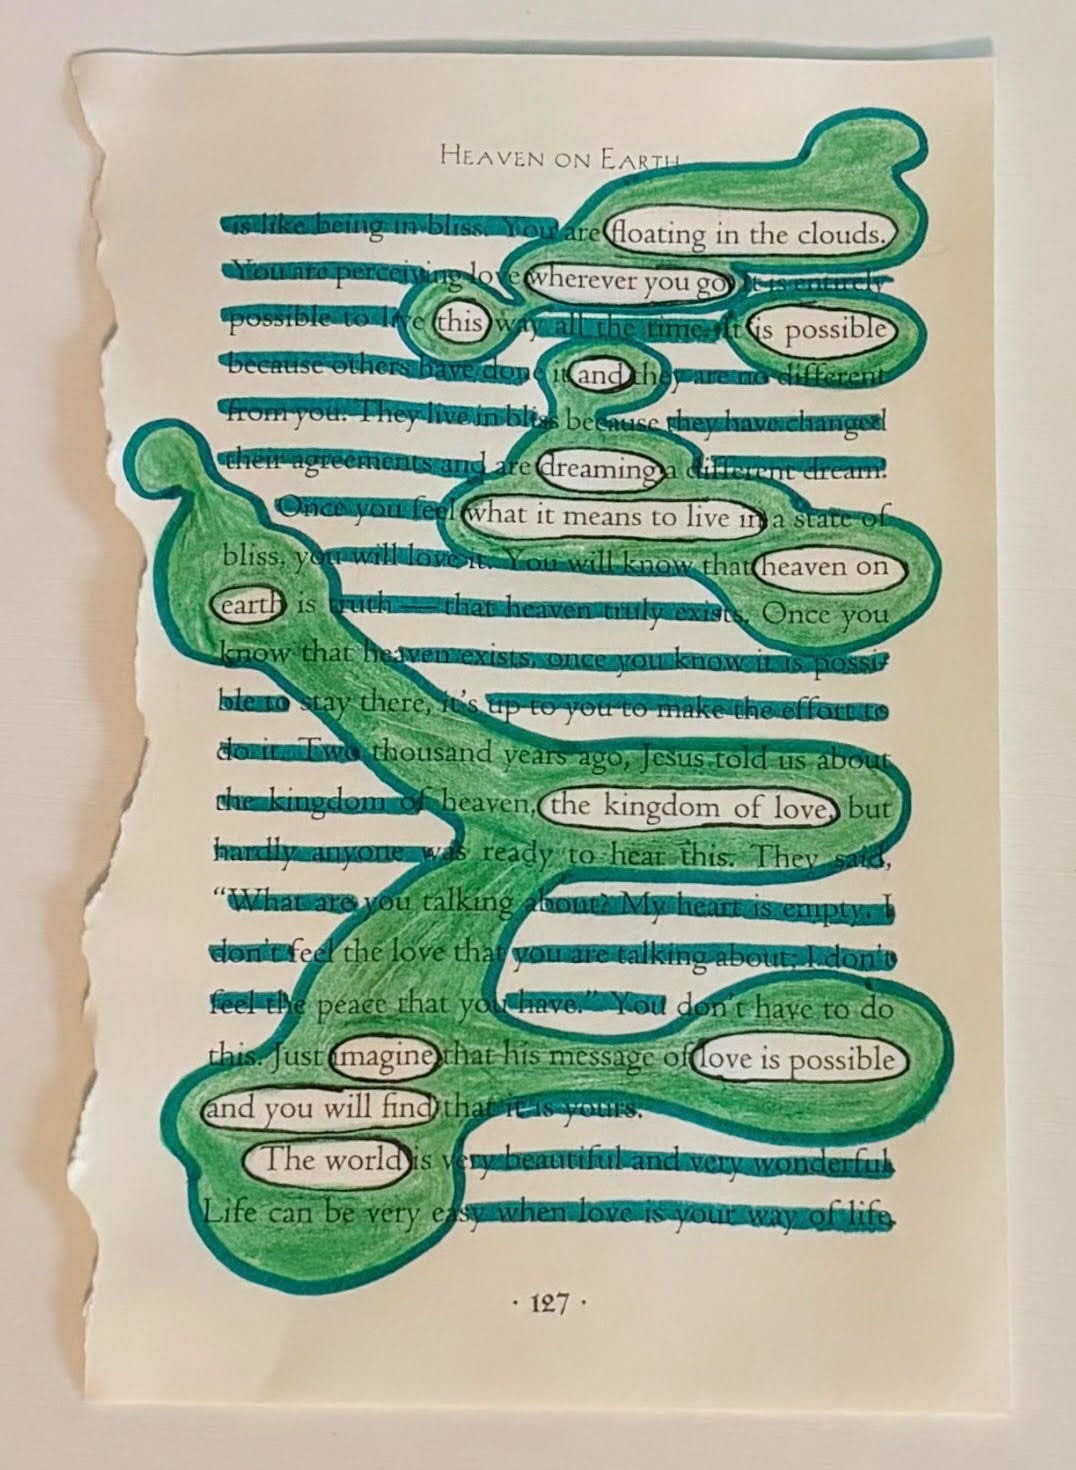 HEAVEN ON EARTH
is like being in bliss. You are floating in the clouds.
You are perceiving love wherever you go. It is entirely
possible to live this way all the time. It is possible
because others have done it and they are no different
from you. They live in bliss because they have changed
their agreements and are dreaming a different dream.
Once you feel what it means to live in a state of
bliss, you will love it. You will know that heaven on
earth is truth — that heaven truly exists. Once you
know that heaven exists, once you know it is possi-
ble to stay there, it's up to you to make the effort to
do it. Two thousand years ago, Jesus told us about
the kingdom of heaven, the kingdom of love, but
hardly anyone was ready to hear this. They said,
“What are you talking about? My heart is empty, I
don't feel the love that you are talking about; I don't
feel the peace that you have.” You don't have to do
this. Just imagine that his message of love is possible
and you will find that it is yours.
The world is very beautiful and very wonderful.
Life can be very easy when love is your way of life.
· 127 ·